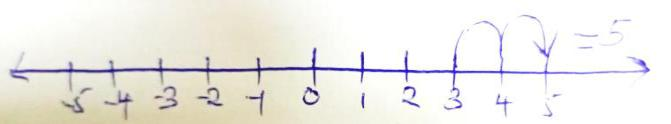 =5
-5 -4 -3 -2 -1 0 1 2 3 4 5